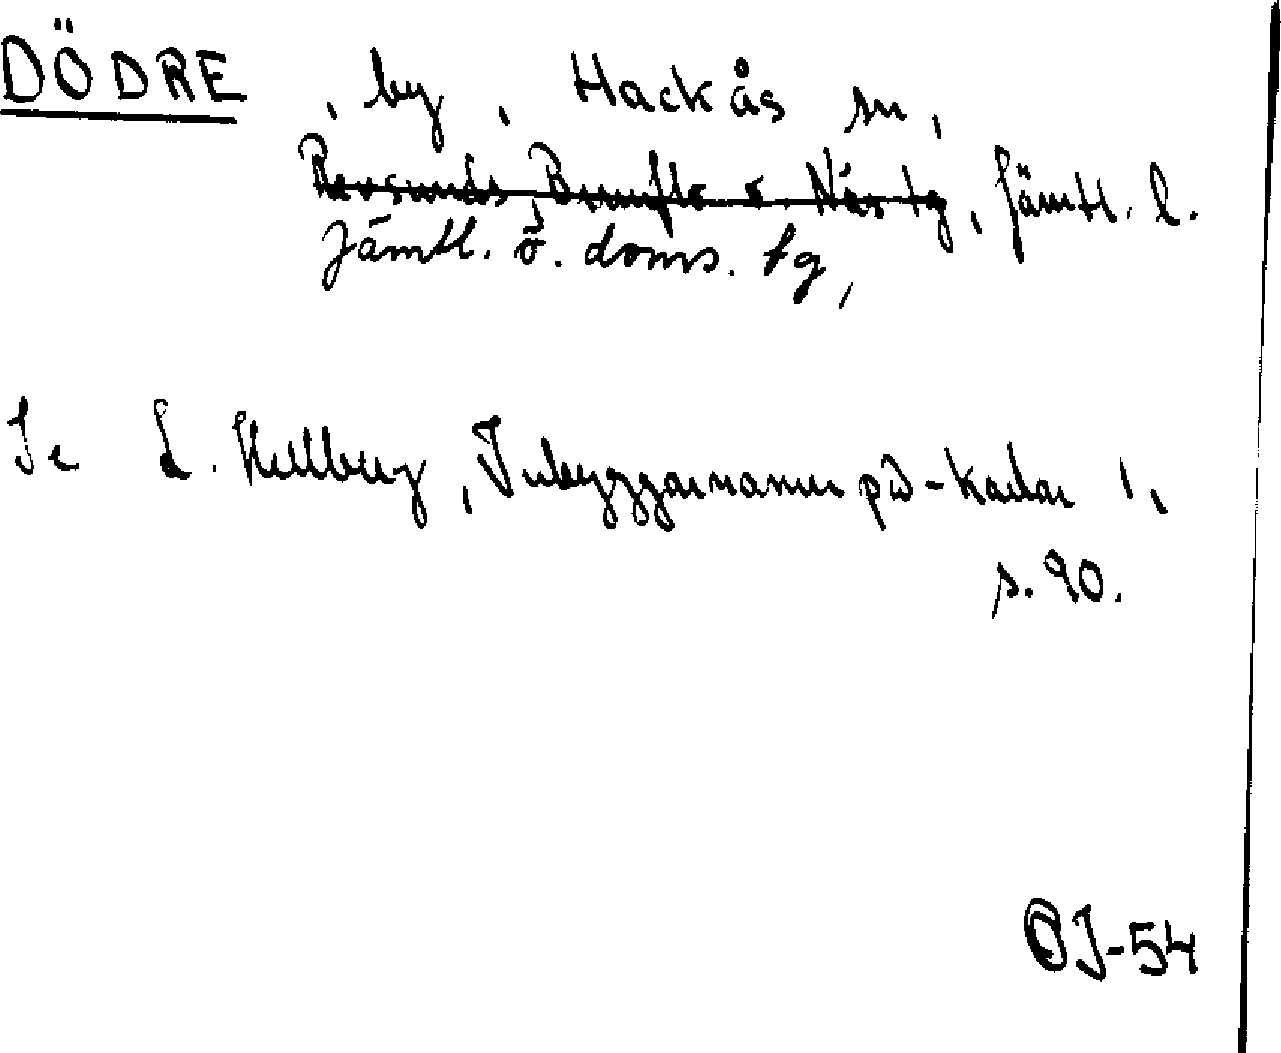 DÖDRE, by, Hackås sn,
Revsunds, Brunflo o. Näs tg, Jämtl. l.
Jämtl. ö. doms. tg,
Se L. Hellberg, Inbyggarnamn på -karlar 1,
s. 90.
OJ-54